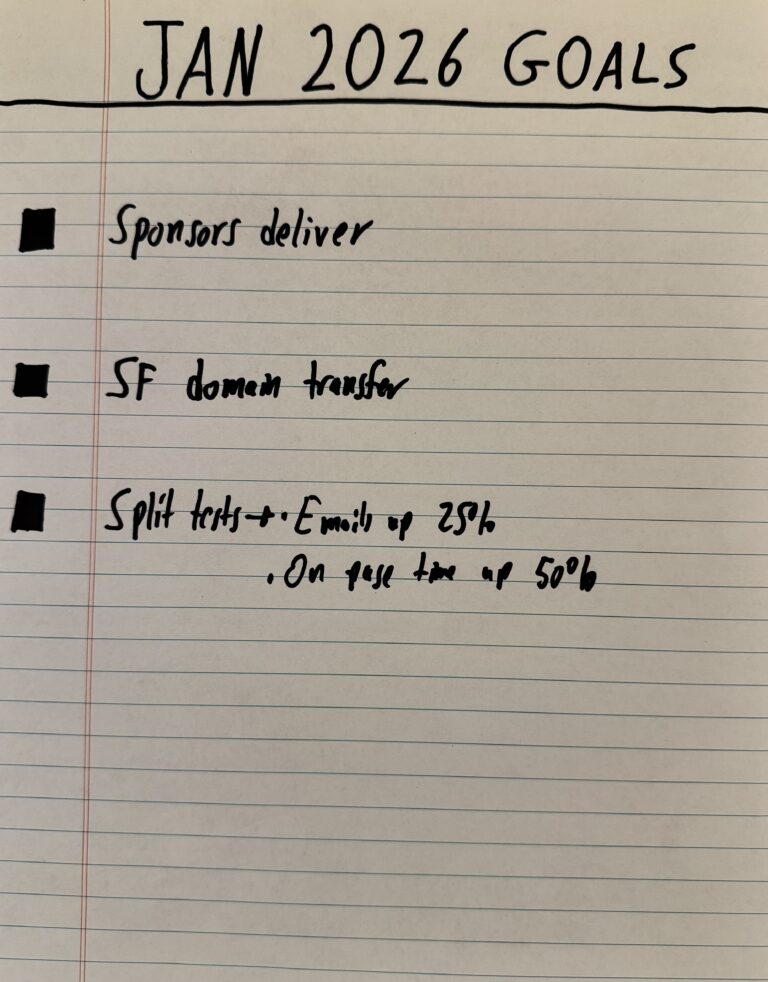 JAN 2026 GOALS
■ Sponsors deliver
■ SF domain transfer
■ Split tests → · Emails up 25%
· On page time up 50%